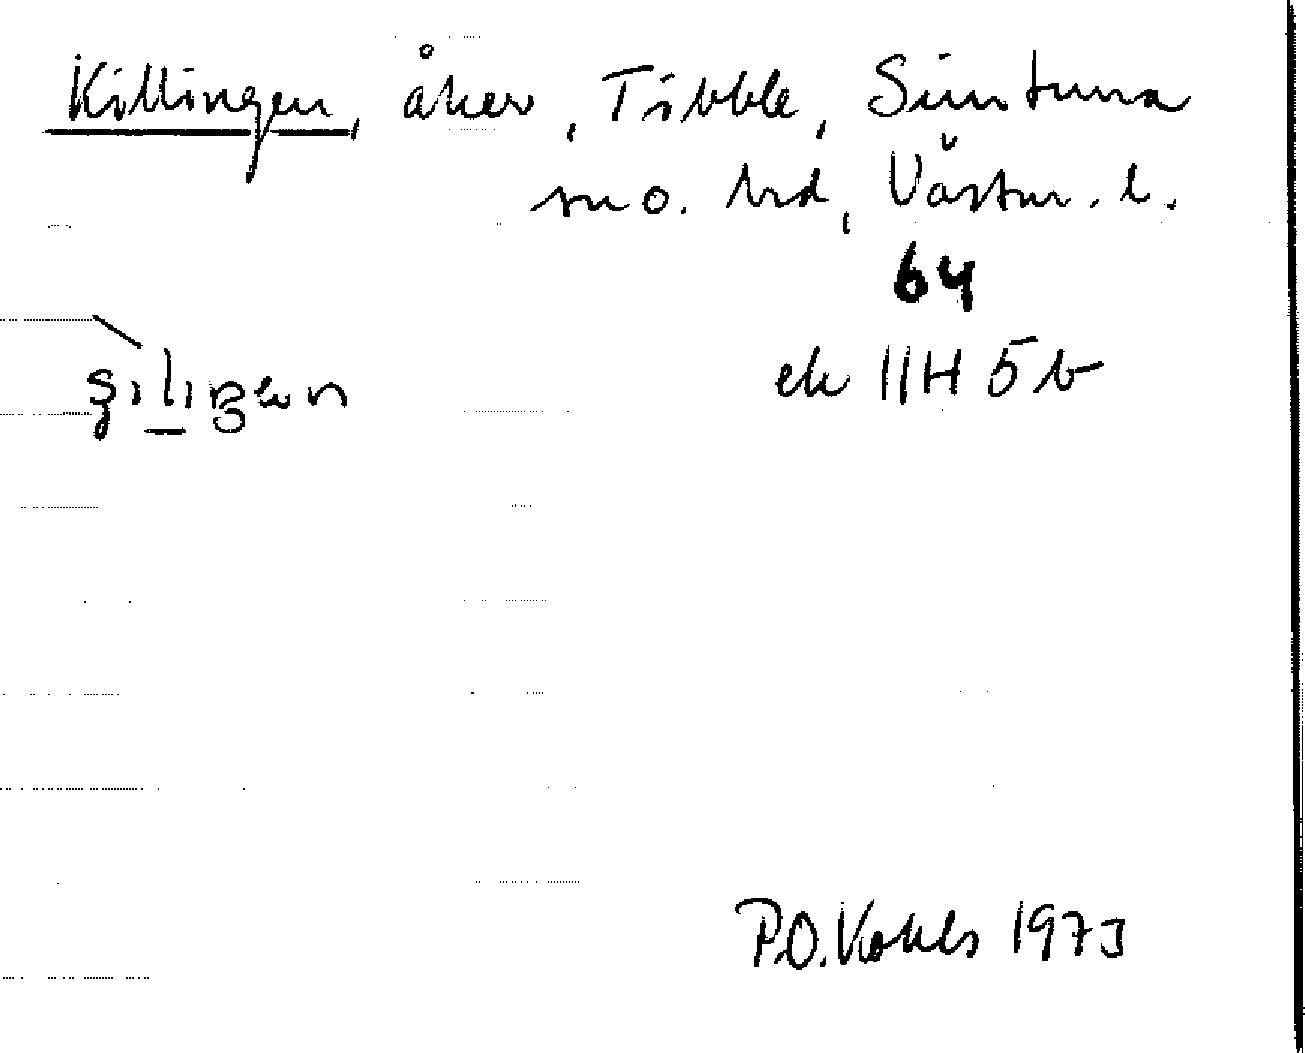 Killingen, åker, Tibble, Simtuna
sn o. hd, Västm. l.
64
ek 11H 5b
P.O. Kohls 1973